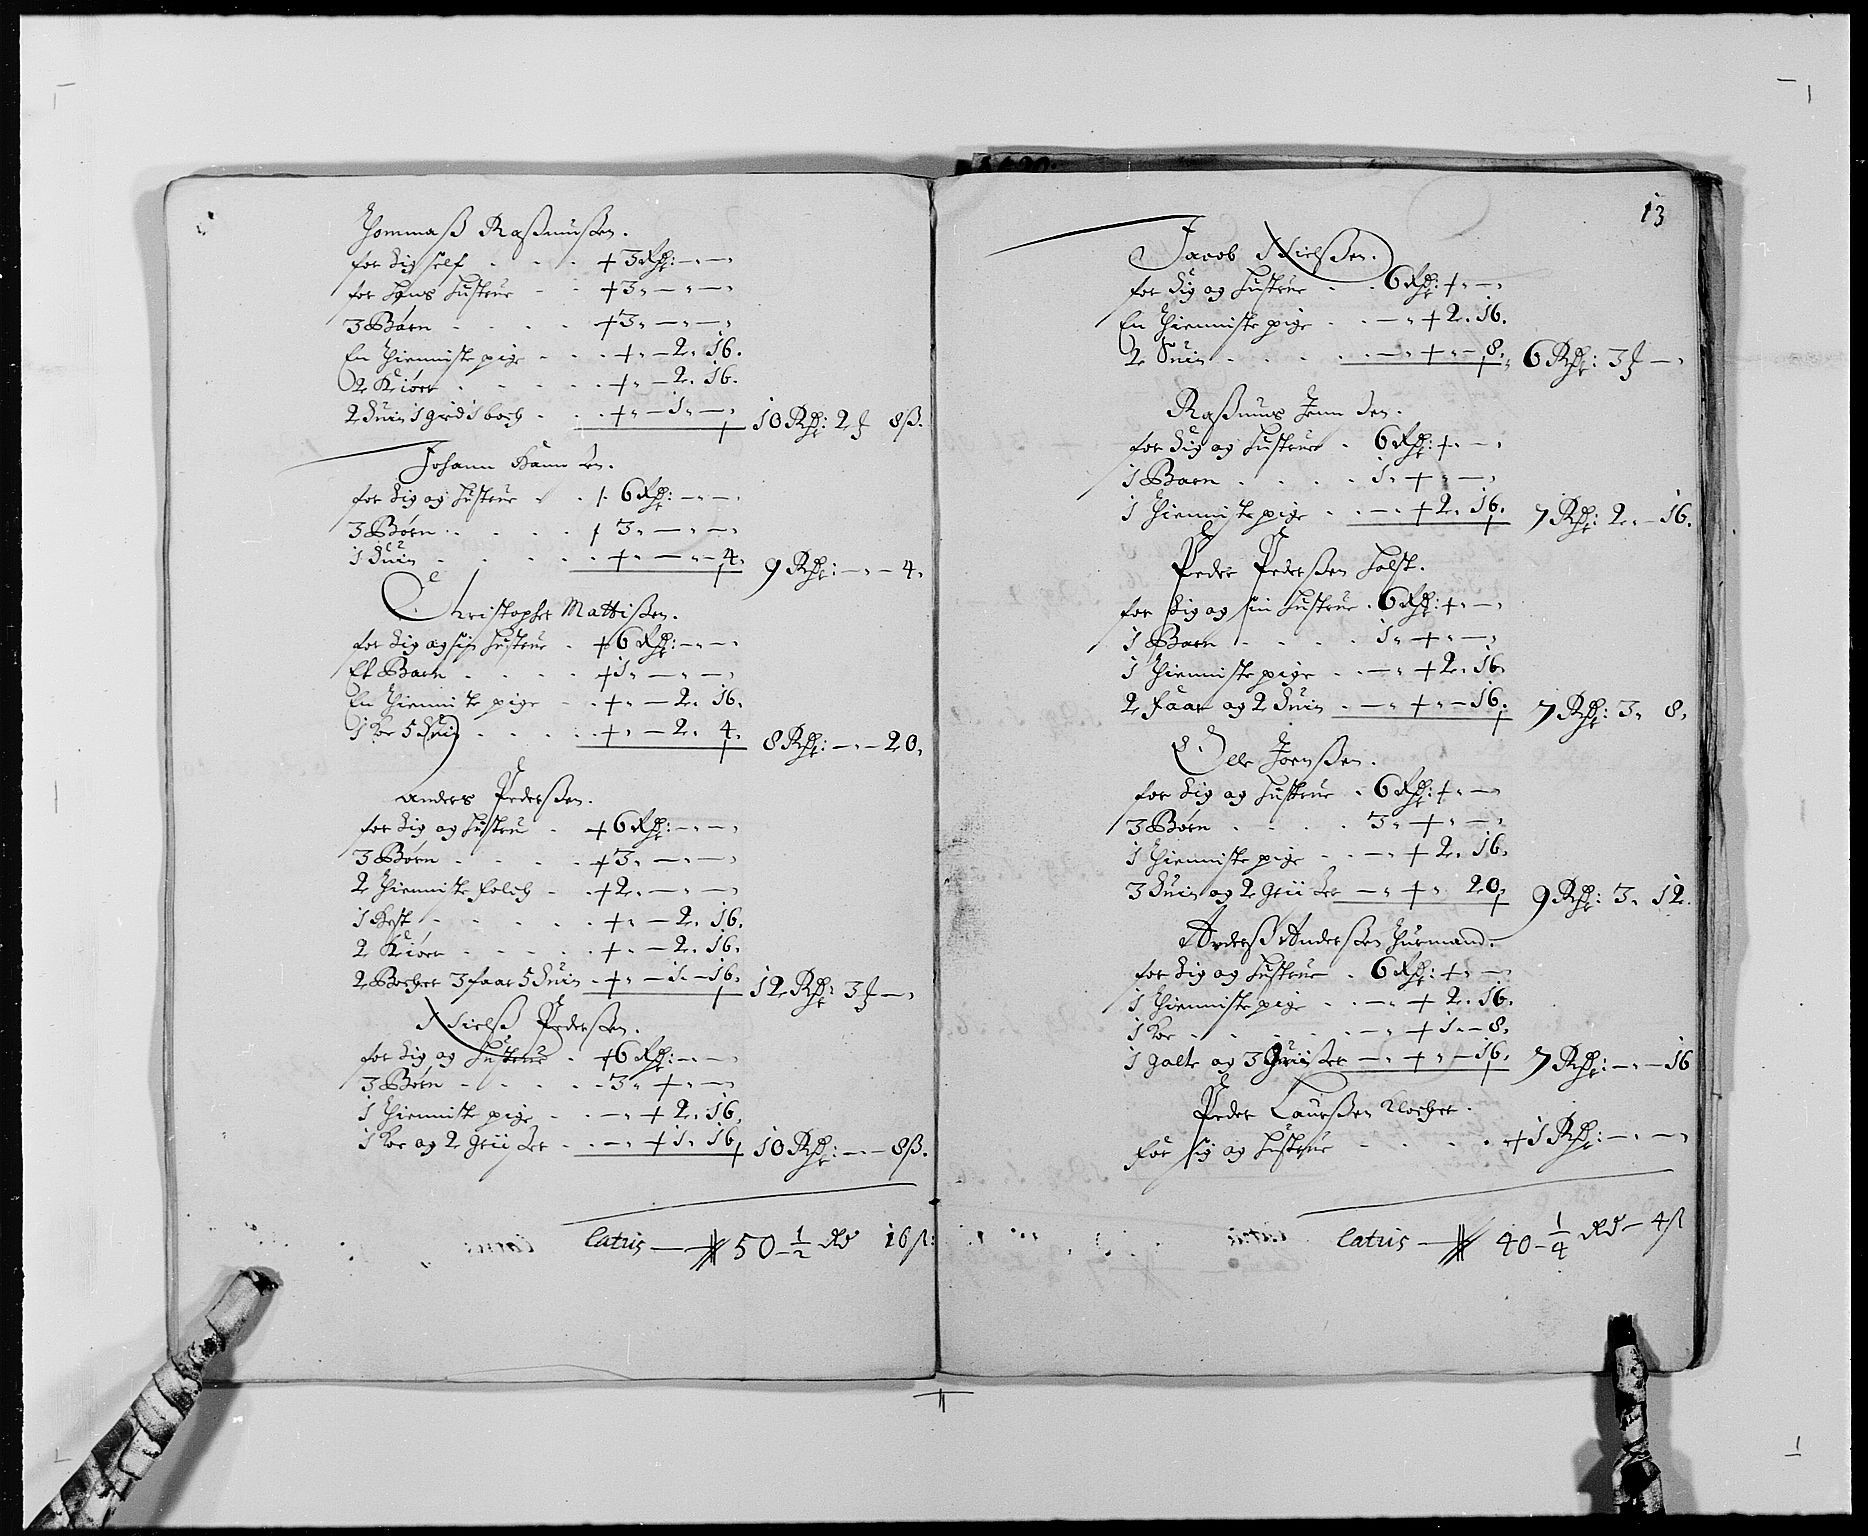 Thommaß Raßmußen.
for sig self - - - + 3 Rdr: – " – "
for hans hustrue - - + 3 " – " – "
3 Børn - - - - + 3 " – " – "
En thienniste pige - - - + " – 2 " 16.
2 Kiører - - - - + " – 2 " 16.
2 Suin 1 gedisboch - - + " – 1 " – " 10 Rdr: 2 ʒ 8 ß.
Johann Hannsen.
for sig og hustrue - - + 6 Rdr: – " – "
3 Børn - - - - + 3 " – " – "
1 Suin - - - - - + " – " – 4. 9 Rdr: – " – 4.
Christopher Mattißen.
for sig og sin hustrue - + 6 Rdr: – " – "
Et Barn - - - - + 1 " – " – "
En thienniste pige - - + " – 2 " 16.
1 Koe 5 Suin - - - - + " – 2 " 4. 8 Rdr: – " – 20.
Anders Pederßen.
for sig og hustrue - + 6 Rdr: – " – "
3 Børn - - - - + 3 " – " – "
2 thienniste folch - - + 2 " – " – "
1 Hest - - - - - + " – 2 " 16.
2 Kiører - - - - - + " – 2 " 16.
2 Bocher 3 faar 5 Suin - + " – 1 – 16. 12 Rdr: 3 ʒ – "
Nielß Pederßen.
for sig og hustrue - + 6 Rdr: – " – "
3 Børn - - - - - 3 " + " – "
1 thienniste pige - - – " + 2 " 16.
1 Koe og 2 griißer - - – " + 1 " 16. 10 Rdr: – " – 8 ß.
Latus — 50 – 1/2 Rd 16 ß:
13
Jacob Nielßen.
for sig og hustrue - - 6 Rdr: + " – "
En thienniste pige - - – " + 2 " 16.
2 Suin - - - - - – " + " – 8. 6 Rdr: 3 ʒ – "
Raßmus Jennsen.
for sig og hustrue - 6 Rdr: + " – "
1 Barn - - - - 1 " + " – "
1 thienniste pige - - – " + 2 " 16. 7 Rdr: 2 " – 16.
Peder Pederßen Holst.
for sig og sin hustrue - 6 Rdr: + " – "
1 Barn - - - - 1 " + " – "
1 thienniste pige - - – " + 2 " 16.
2 faar og 2 Suin - – " + " – 16. 7 Rdr: 3 " 8.
Olle Joenßen.
for sig og hustrue - 6 Rdr: + " – "
3 Børn - - - - 3 " + " – "
1 thienniste pige - - – " + 2 " 16.
3 Suin og 2 griißer – " + " 20. 9 Rdr: 3 " 12.
Anderß Anderßen Huusmand.
for sig og hustrue - 6 Rdr: + " – "
1 thienniste pige - - – " + 2 " 16.
1 Koe - - - - - – " + 1 " – 8.
1 galte og 3 griißer – " + " – 16. 7 Rdr: – " – 16
Peder Laurßen Klocher.
for sig og hustrue - - - - + 1 Rdr: – " – "
Latus — 40 – 1/4 Rd – 4 ß